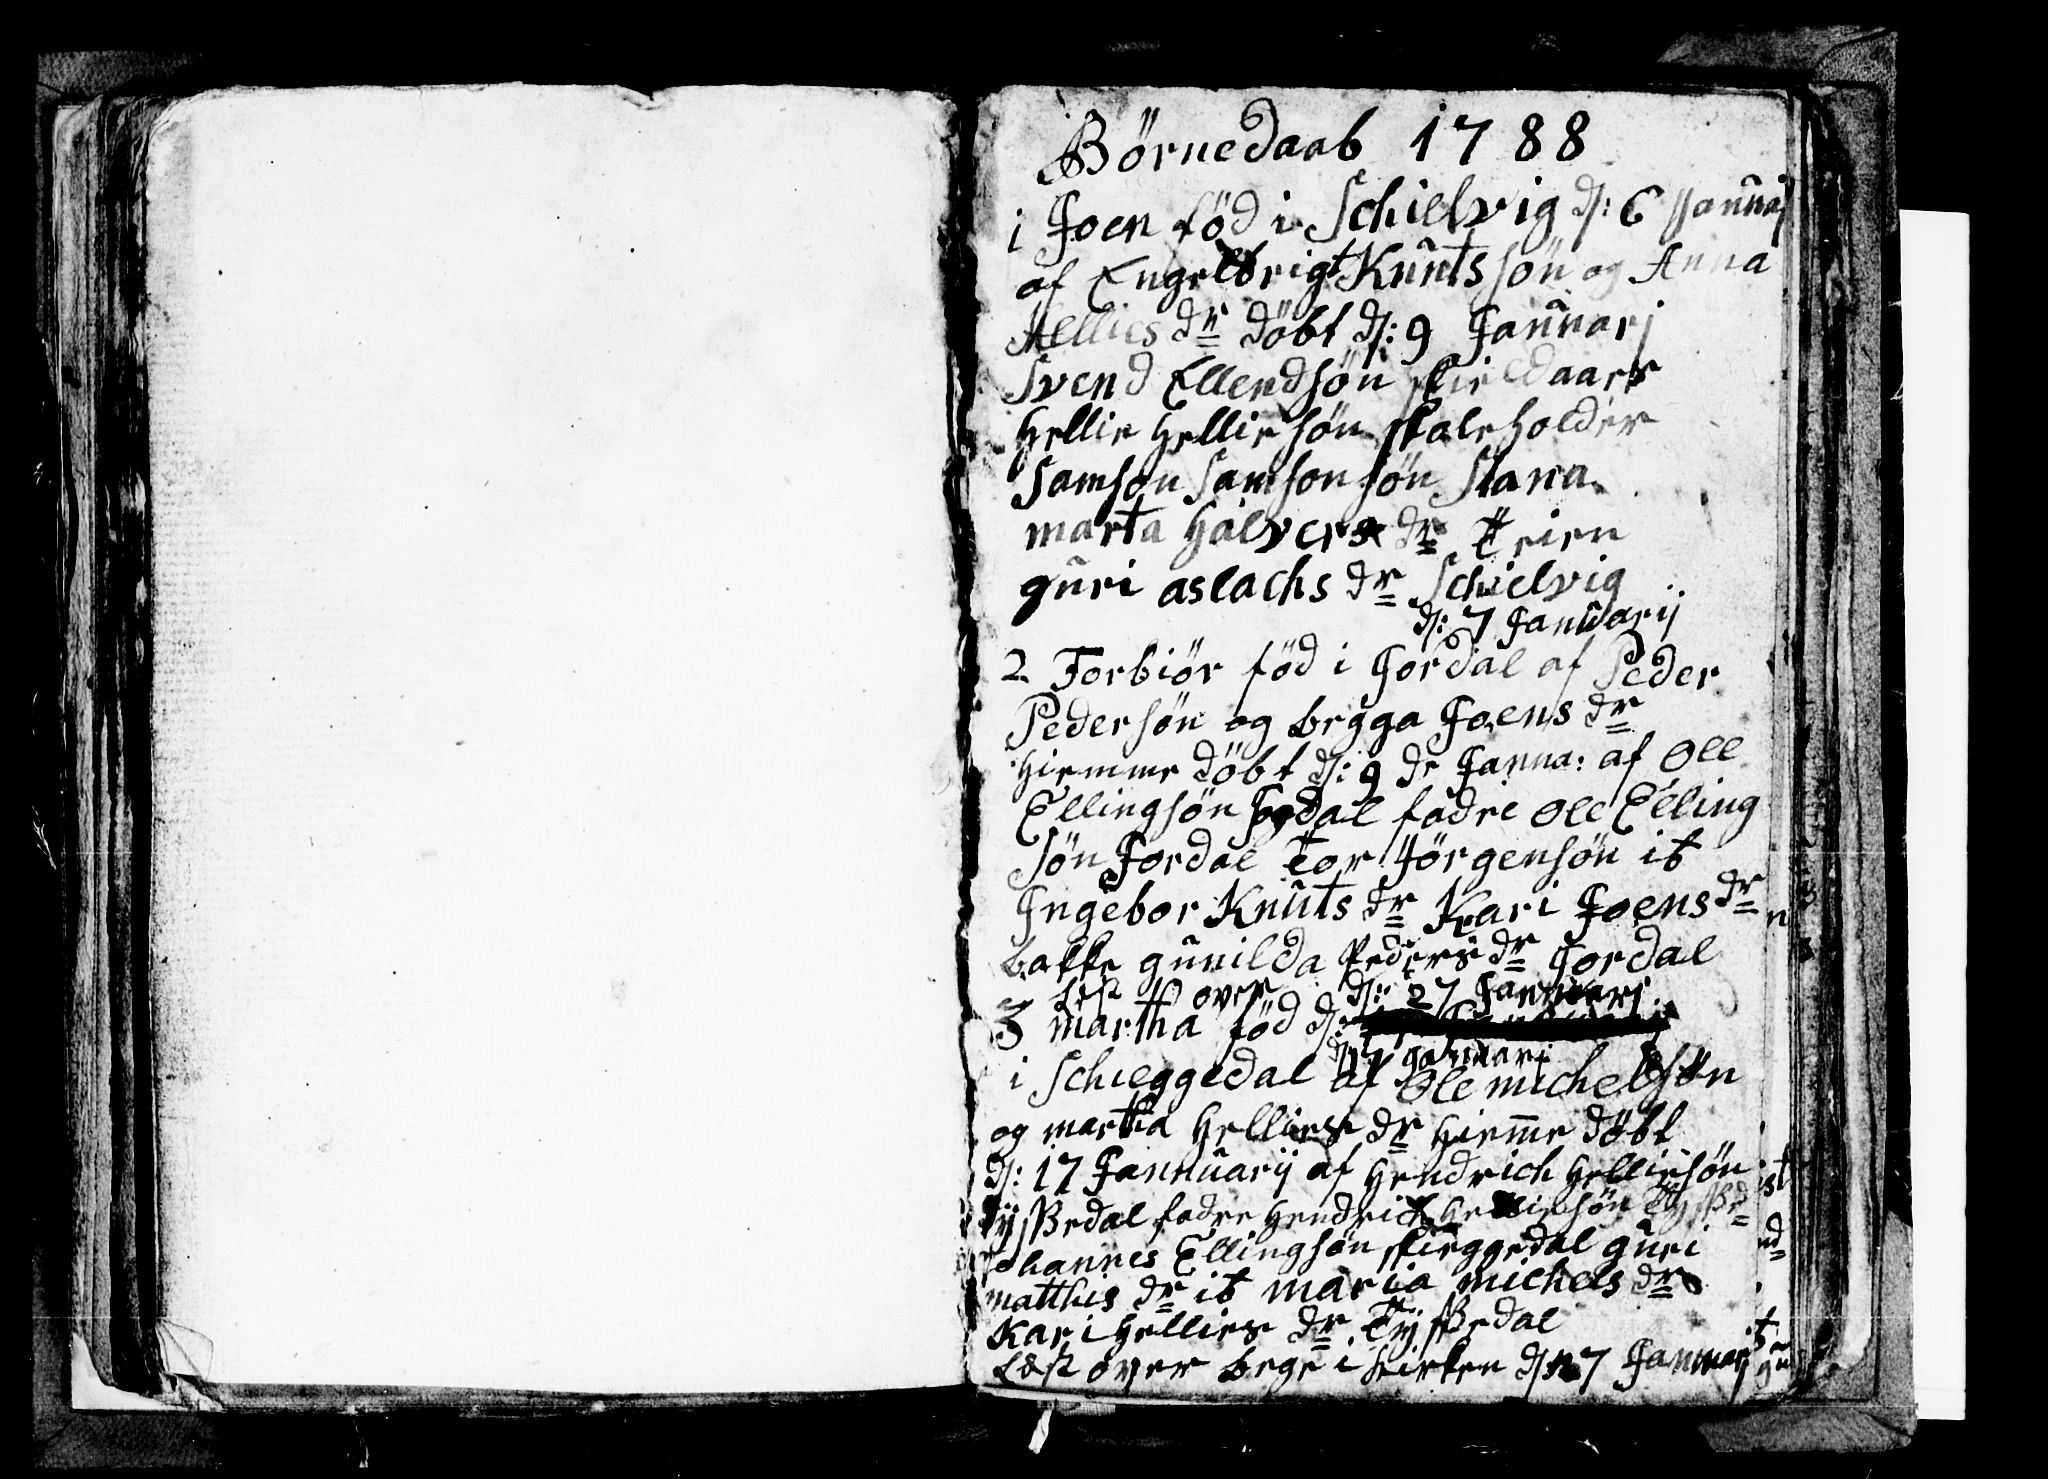 Börnedaab 1788
i Joen föd i Schielvig d: 6 Januarj
af Engelbrigt Knutssön og Anna
Hellies dr döbt d: 9 Januarj
Svend Ellendsön skieldaars
Hellie Helliesön skoleholder
Samson Samsonsön Stana
marta Halvers dr Teien
guri aslachs dr Schielvig
d: 7 Januarij
2 Torbiör föd i Jordal af Peder
Pedersön og begga Joens dr
hiemme döbt d: 9 de Janna: af Ole
Ellingsön Jordal fadre Ole Elling
sön Jordal Tor Jörgensön it
Ingebor Knuts dr Kari Joens dr
bakke gunilda Peders dr Jordal
Læst over d: 27 Januarj
3 martha föd d:
d 17 Januarj
i Schieggedal af Ole michelsön
og martha Hellies dr hiemme döbt
d: 17 Jannuarij af Hendrich Helliesön
Tÿssedal fadre Hendrich Helliesön Tÿssed
Johannes Ellingsön skieggedal guri
matthis dr it maria michels dr
Kari Hellies dr Tÿssedal
Læst over bege i kirken d 27 Januarj